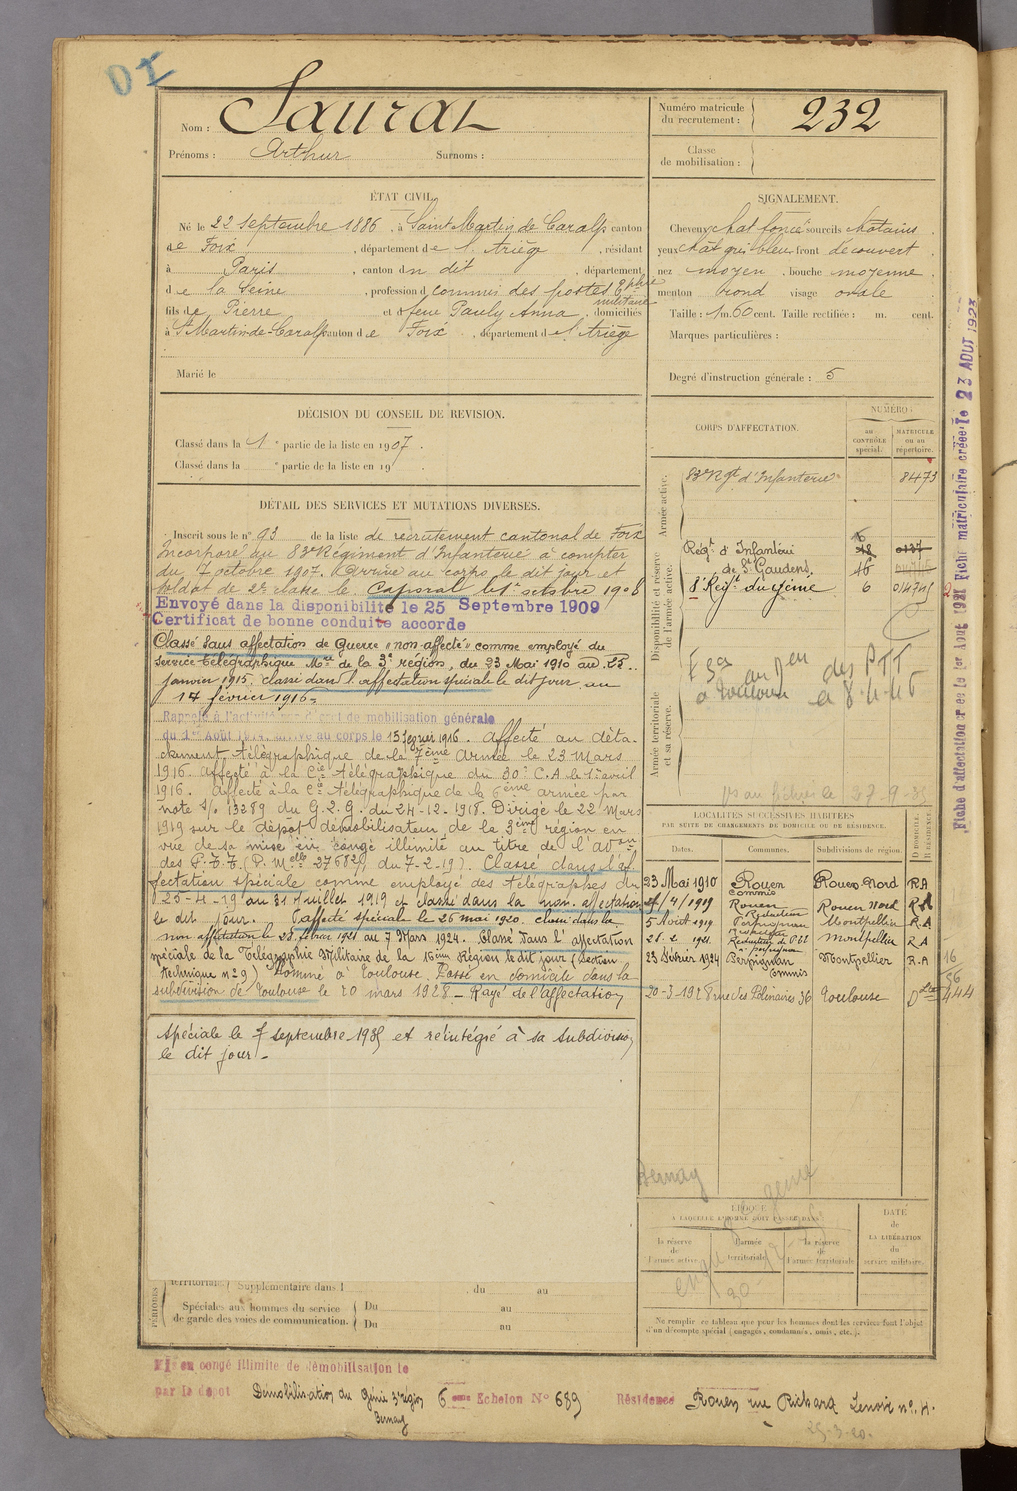 DI
Nom : Saurat
Prénoms : Arthur Surnoms :
Numéro matricule du recrutement : 232
Classe de mobilisation :
ÉTAT CIVIL.
Né le 22 septembre 1886, à Saint Martin de Caralp canton
de Foix, département de l'Ariège, résidant
à Paris, canton du dit, département
de la Seine, profession d commis des postes
militaire
fils de Pierre et de feue Pauly Anna, domiciliés
à St Martin-de-Caralp canton de Foix, département de l'Ariège
Marié le
SIGNALEMENT.
Cheveux chat foncé sourcils chatains
yeux chat gris bleu front découvert
nez moyen, bouche moyenne
menton rond visage ovale
Taille : 1 m. 60 cent. Taille rectifiée : m. cent.
Marques particulières :
Degré d'instruction générale : 5
DÉCISION DU CONSEIL DE REVISION.
Classé dans la 1e partie de la liste en 1907.
Classé dans la e partie de la liste en 19
DÉTAIL DES SERVICES ET MUTATIONS DIVERSES.
Inscrit sous le n° 93 de la liste de recrutement cantonal de Foix
Incorporé au 83e Régiment d'Infanterie à compter
du 7 octobre 1907. Arrivé au corps le dit jour et
soldat de 2e classe le. Caporal le 1 octobre 1908
Envoyé dans la disponibilité le 25 Septembre 1909
Certificat de bonne conduite accordé
Classé sans affectation de Guerre "non affecté" comme employé du
service télégraphique Mre de la 3e région, du 23 Mai 1910 au 25
janvier 1915, classé dans l'affectation spéciale le dit jour au
14 février 1916.
Rappelé à l'activité de mobilisation générale
du 1er Août 1914. Arrivé au corps le 15 février 1916. Affecté au déta-
chement télégraphique de la 7ème Armée le 23 mars
1916. Affecté à la Cie télégraphique du 30e C.A le 1er avril
1916. Affecté à la Cie télégraphique de la 6ème armée par
note s/s 13289 du G.Q.G. du 24-12-1918. Dirigé le 22 Mars
1919 sur le dépôt démobilisateur de la 3ème région en
vue de sa mise en congé illimité au titre de l'
des P.T.T. (P. Melle 27682 du 7-2-19). Classé dans l'af-
fectation spéciale comme employé des télégraphes du
25-4-19 au 31 Juillet 1919 et classé dans la non affectation
le dit jour. affecté spéciale le 26 mai 1920 classé dans la
non affectation le 25 février 1921 au 7 Mars 1924. Classé dans l'affectation
spéciale de la Télégraphie Militaire de la 16ème Région le dit jour (Section
technique n° 29) Nommé à Toulouse. Passé en domicile dans la
subdivision de Toulouse le 20 mars 1928 - Rayé de l'affectation
spéciale le 7 septembre 1935 et réintégré à sa subdivision
le dit jour -
CORPS D'AFFECTATION.
NUMÉRO :
au CONTRÔLE spécial.
MATRICULE ou au répertoire.
Armée active.
83e Rgt d'Infanterie 8473
Disponibilité et réserve de l'armée active.
Régt d'Infanterie
de St Gaudens
8e Régt du génie 6
Armée territoriale et sa réserve.
des PTT
à Toulouse
LOCALITÉS SUCCESSIVES HABITÉES
PAR SUITE DE CHANGEMENTS DE DOMICILE OU DE RÉSIDENCE.
Dates. Communes. Subdivisions de région. D DOMICILE. R RÉSIDENCE.
23 Mai 1910 Rouen Commis Rouen Nord R.A
/4/1919 Rouen Rouen Nord R.A
5 Août 1919 Perpignan Montpellier R.A
21. 2 1921. Rédacteur de P.T.T. à perpignan Montpellier R.A
23 février 1924 Perpignan commis Montpellier R.A
20-3-1928 rue des Polinaires 36 Toulouse
Bernay
ÉPOQUE
À LAQUELLE L'HOMME DOIT PASSER DANS
la réserve de l'armée active.
l'armée territoriale.
la réserve de l'armée territoriale.
DATE de LA LIBÉRATION du service militaire.
Ne remplir ce tableau que pour les hommes dont les services font l'objet
d'un décompte spécial (engagés, condamnés, omis, etc.).
PÉRIODES
territoriale Supplémentaire dans l , du au
Spéciales aux hommes du service de garde des voies de communication.
Du au
Du au
Mis en congé illimité de démobilisation le
par le dépôt Démobilisation du Génie 3e région 6ème Echelon N° 689 Résidence Rouen rue Richard Lenoir n° 11.
Bernay
25-3-20.
Fiche d'affectation créée le 1er Août 1921 Fiche matriculaire créée le 23 AOUT 1923